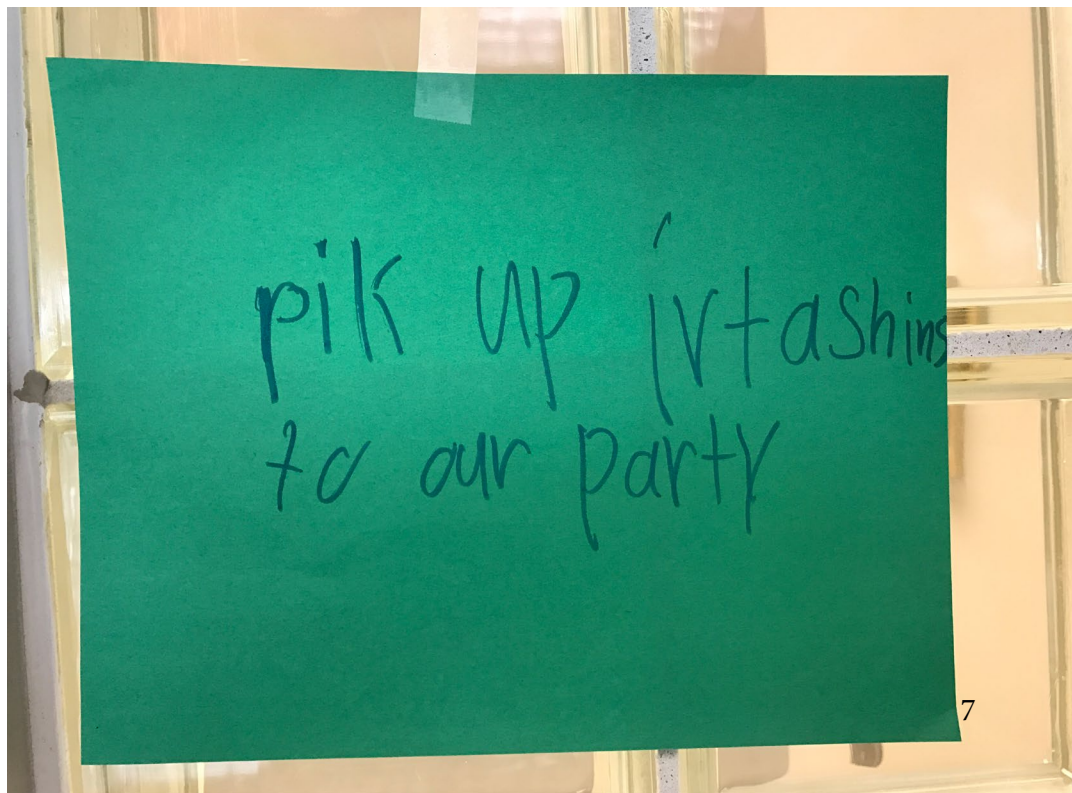 pik up jvtashins
to our party
7